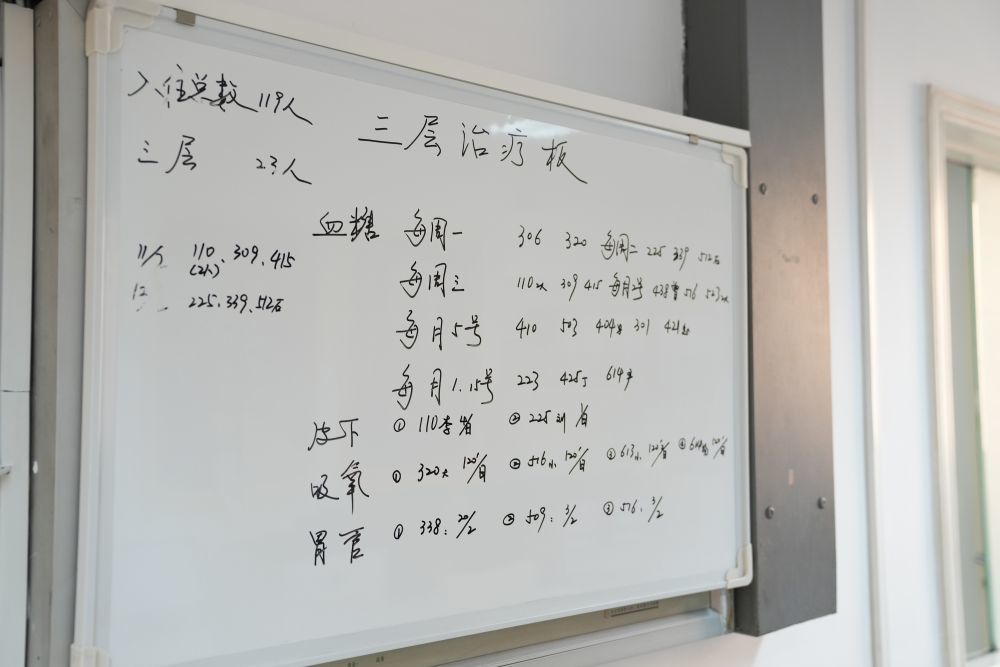 入住总数 119人
三层治疗板
三层 23人
血糖 每周一 306 320 每周二 225 339 512石
11人 110. 309. 415
(2人)
每周三 110 309 415 每月2号 438曹 516 523
12 225. 339. 512石
每月5号 410 503 404 301 421
每月1.15号 223 425 614
皮下 ① 110李 ② 225刘
吸氧 ① 320 120'/日 ② 516小 120'/日 ③ 613小 120'/日 ④ 120'/日
胃管 ① 338: 20/2 ② 509: 3/2 ③ 516: 3/2